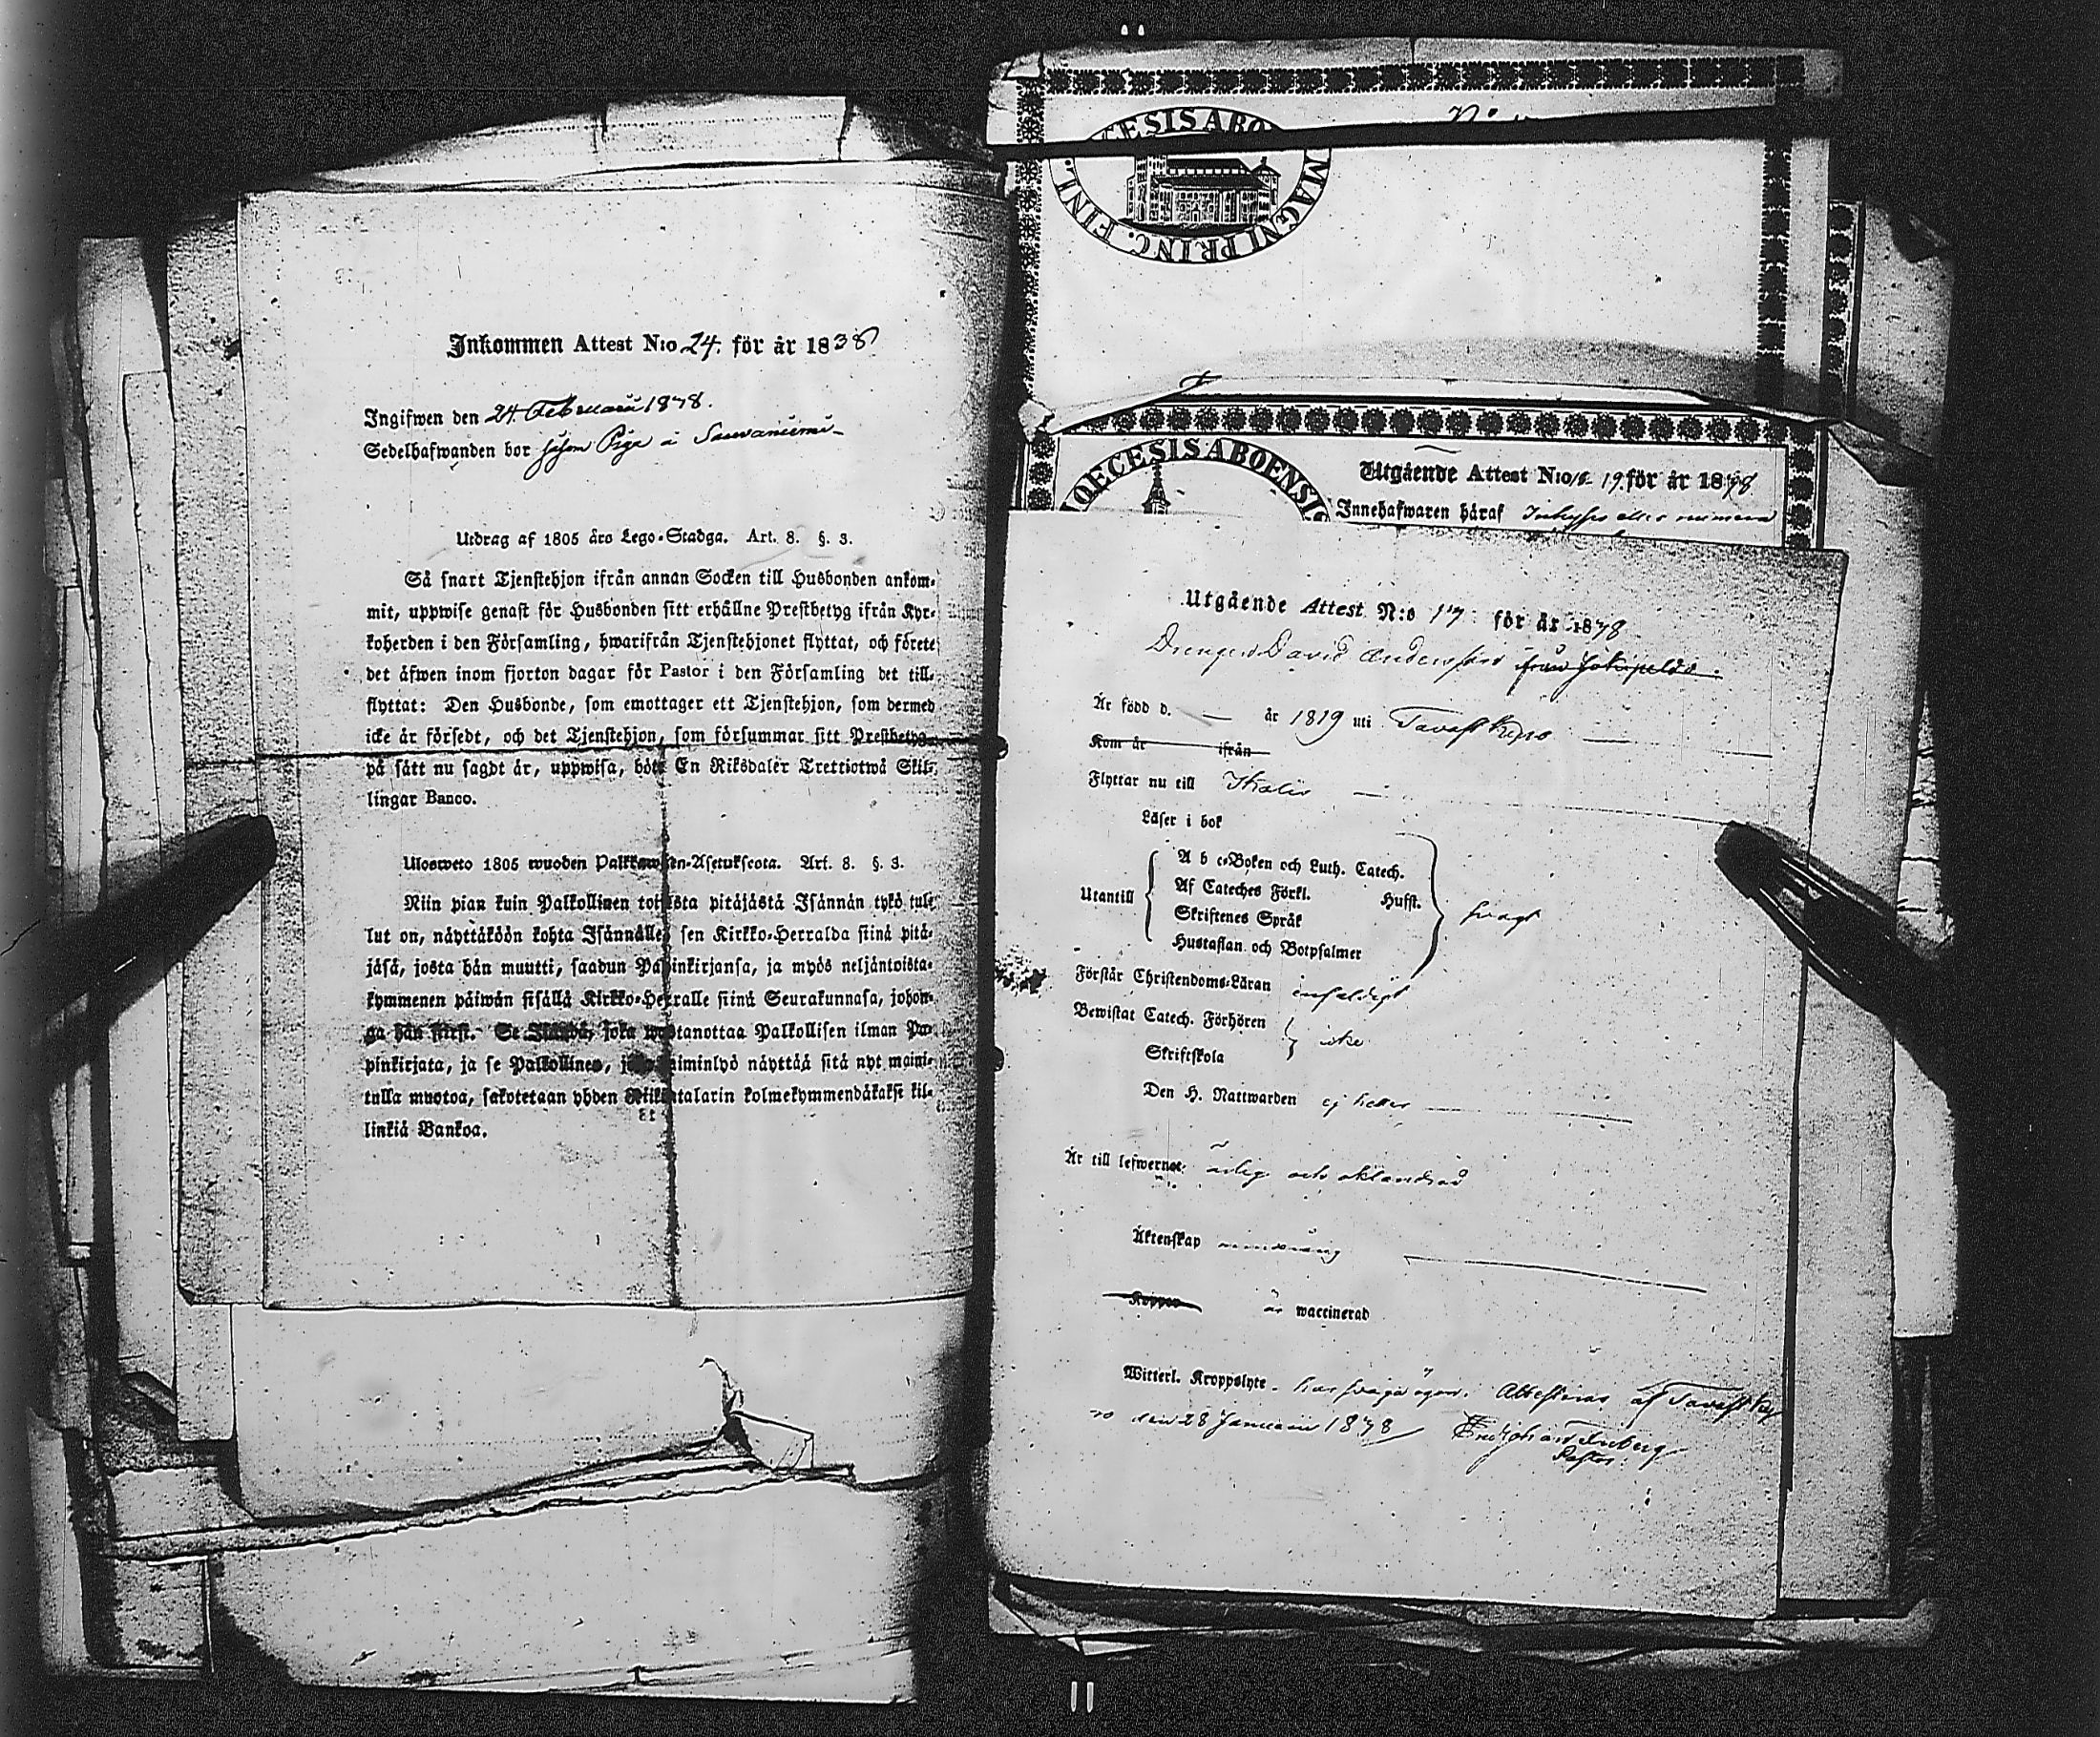 Inkommen Attest N:o 24. för år 1838
Ingifwen den 24 Februarii 1848.
Sedelhafwanden bor såsom Piga å
Utdrag af 1805 års Lego-Stadga. Art. 8. §. 3.
Så snart Tjenstehjon ifrån annan Socken till Husbonden ankom-
mit, uppwise genast för Husbonden sitt erhållne Prestbetyg ifrån Kyr-
koherden i den Församling, hwarifrån Tjenstehjonet flyttat, och förete
det äfwen inom fjorton dagar för Pastor i den Församling det till-
flyttat: Den Husbonde, som emottager ett Tjenstehjon, som dermed
icke är försedt, och det Tjenstehjon, som försummar sitt Prestbetyg,
på sätt nu sagdt är, uppwisa, böte En Riksdaler Trettiotwå Skil-
lingar Banco.
Ulosweto 1805 wuoden Palkkawäen-Asetuksesta. Art. 8. §. 3.
Niin pian kuin Palkollinen toisesta pitäjästä Isännän tykö tul-
lut on, näyttäköön kohta Isännälle, sen Kirkko-Herralda siinä pitä-
jäsä, josta hän muutti, saadun Papinkirjansa, ja myös neljäntoista-
kymmenen päiwän sisällä Kirkko-Herralle siinä Seurakunnasa, johon-
ga hän siirsi. Se Isändä, joka wastanottaa Palkollisen ilman Pa-
pinkirjata, ja se Palkollinen, joka laiminlyö näyttää sitä nyt maini-
tulla muotoa, sakotetaan yhden Riikintalarin kolmekymmendäkaksi kil-
linkiä Bankoa.
DIOECESIS ABOENSIS MAGNI PRINC. FINL.
DIOECESIS ABOENSIS
Utgående Attest N:o 19. för år 1848
Innehafwaren häraf
Utgående Attest N:o 17 för år 1848
Drengen David Andersson från
Är född d. — år 1819 uti Tavastkyro
Kom år ifrån
Flyttar nu till Ikalis
Läser i bok
Utantill
A b c-Boken och Luth. Catech.
Af Cateches Förkl. Hufst.
Skriftenes Språk
Hustaflan och Botpsalmer
svagt
Förstår Christendoms-Läran enfaldigt
Bewistat Catech. Förhören
Skriftskola
icke
Den H. Nattwarden ej heller
Är till lefwernet ärlig och oklandrad
Äktenskap
Koppor är waccinerad
Witterl. Kroppslyte har svaga ögon. Attesteras af Tavastky-
ro den 28 Januarii 1848
Pastor.